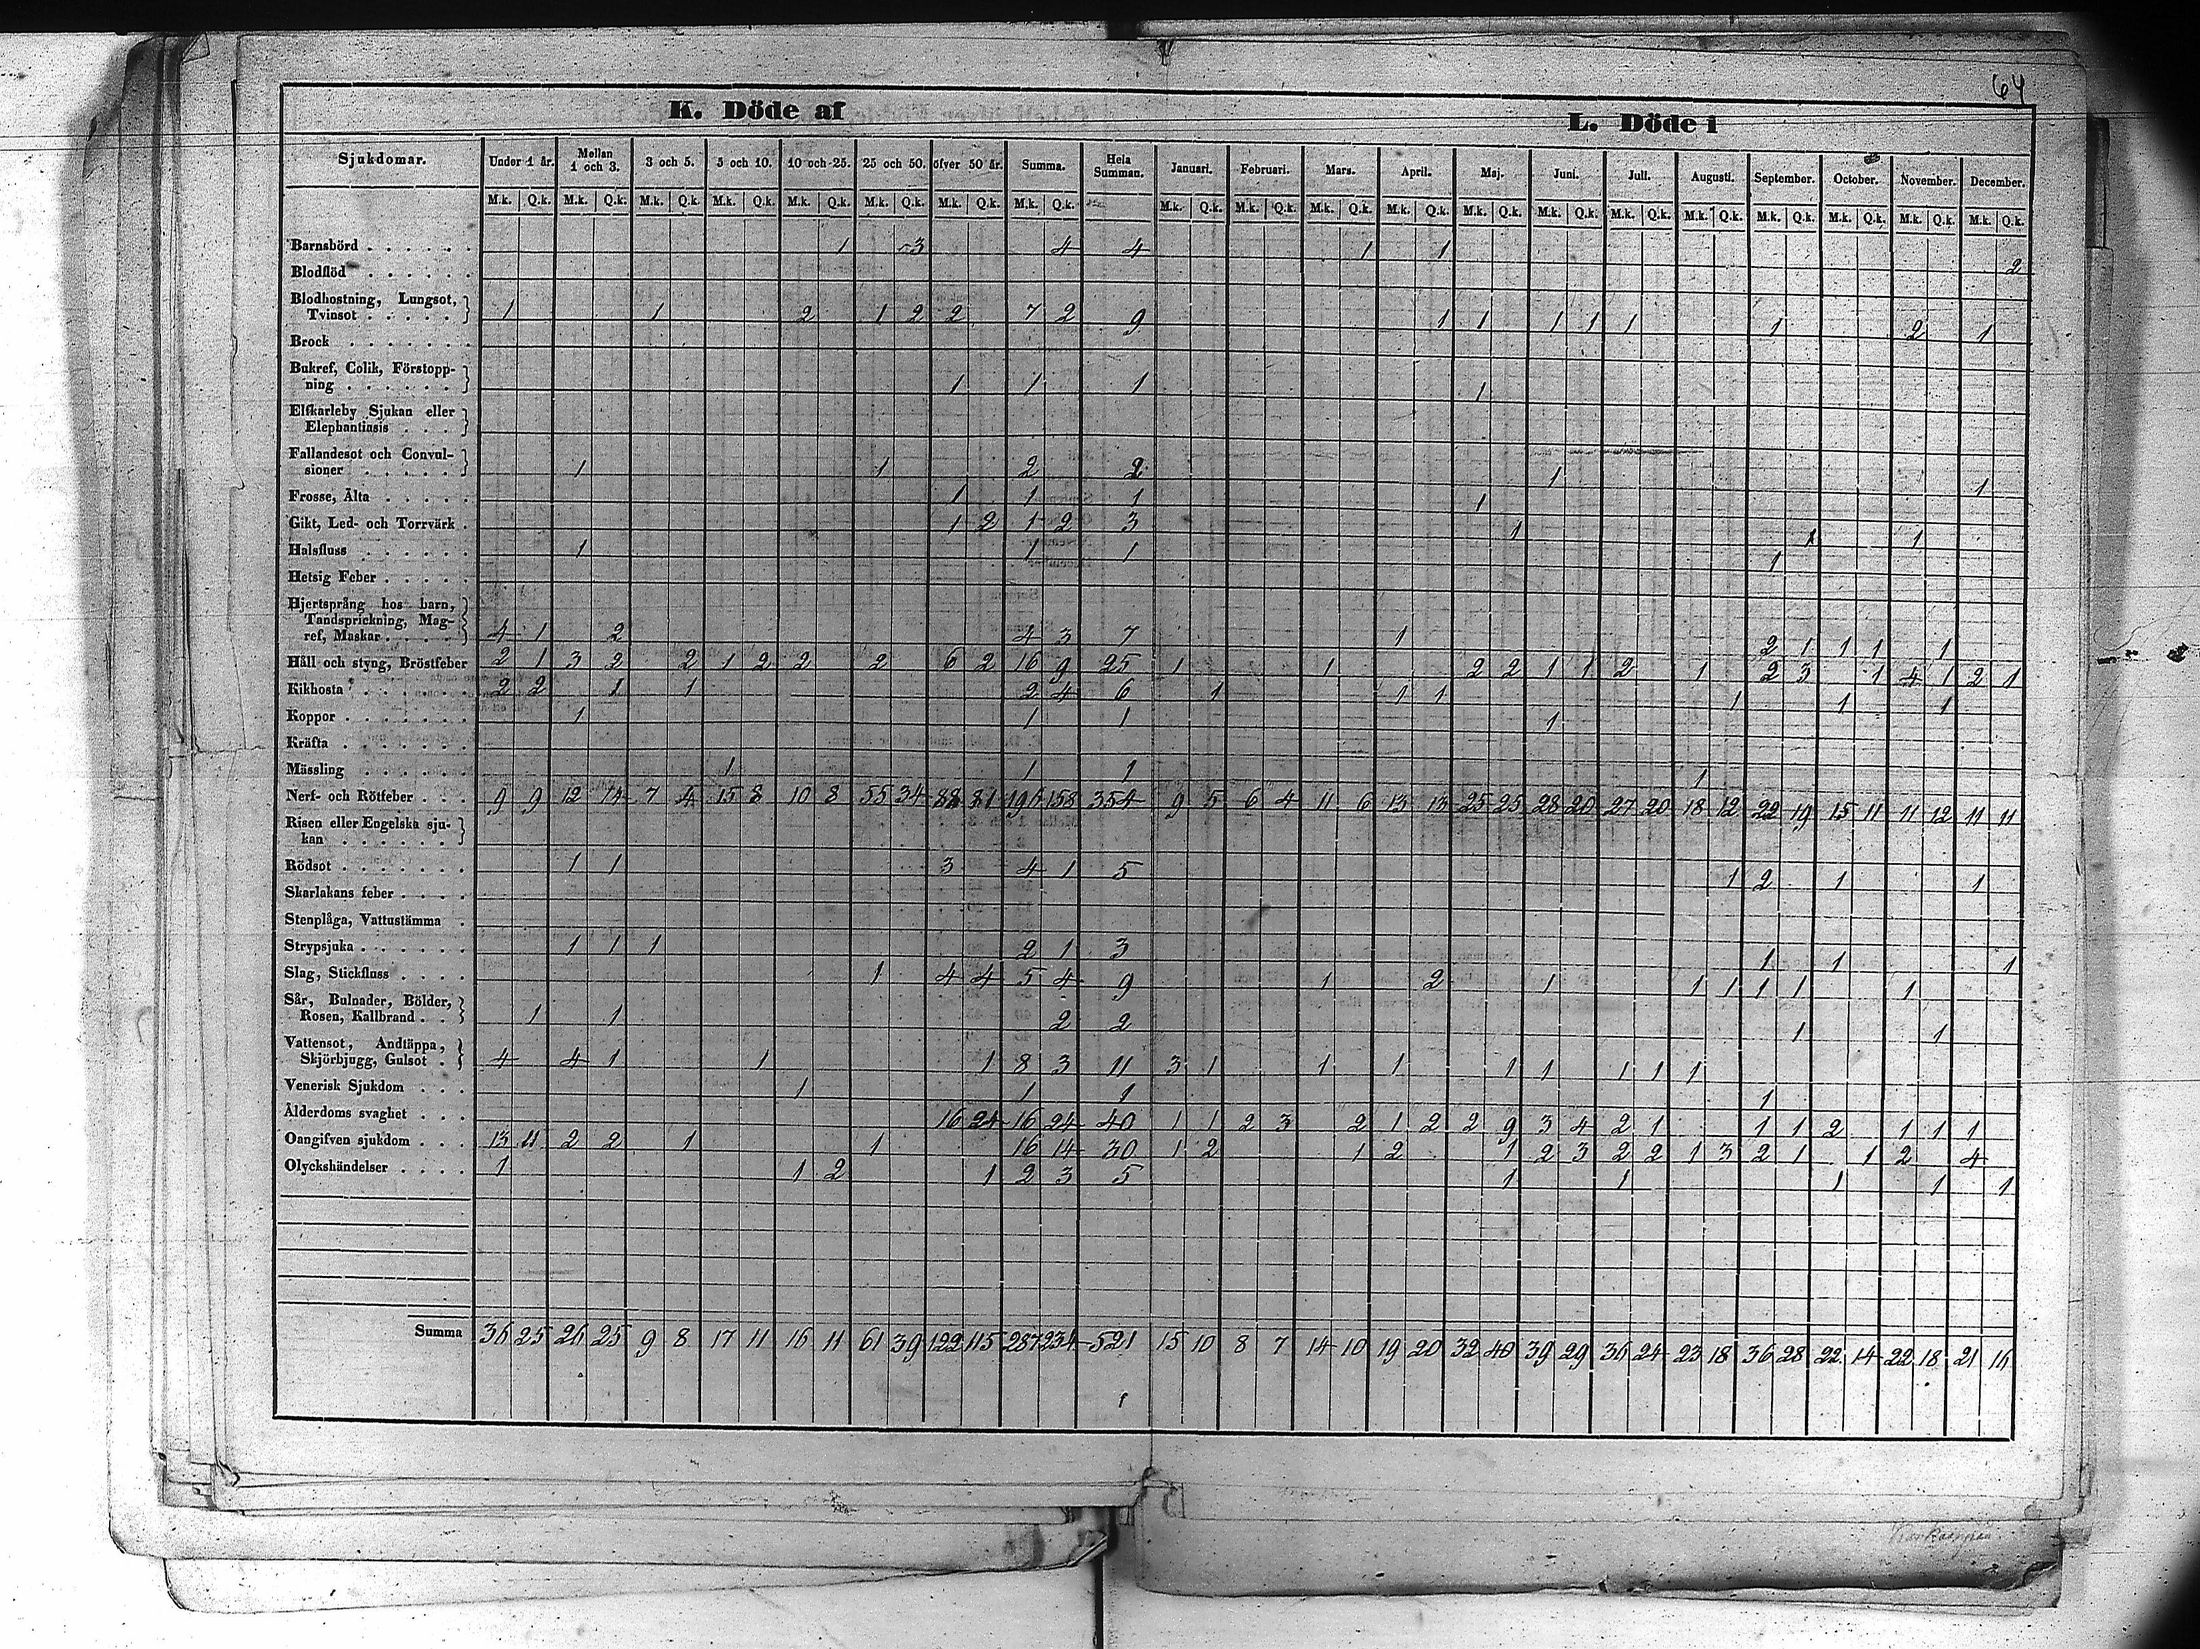 64
K. Döde af
L. Döde i
Sjukdomar. Under 1 år. Mellan 1 och 3. 3 och 5. 5 och 10. 10 och 25. 25 och 50. öfver 50 år. Summa. Hela Summan. Januari. Februari. Mars. April. Maj. Juni. Juli. Augusti. September. October. November. December.
M.k. Q.k. M.k. Q.k. M.k. Q.k. M.k. Q.k. M.k. Q.k. M.k. Q.k. M.k. Q.k. M.k. Q.k. M.k. Q.k. M.k. Q.k. M.k. Q.k. M.k. Q.k. M.k. Q.k. M.k. Q.k. M.k. Q.k. M.k. Q.k. M.k. Q.k. M.k. Q.k. M.k. Q.k. M.k. Q.k.
Barnsbörd 1 3 4 4 1 1 2
Blodflöd
Blodhostning, Lungsot,
Tvinsot 1 1 2 1 2 2 7 2 9 1 1 1 1 1 1 2 1
Brock
Bukref, Colik, Förstopp-
ning 1 1 1 1
Elfkarleby Sjukan eller
Elephantiasis
Fallandesot och Convul-
sioner 1 1 2 2 1 1
Frosse, Älta 1 1 1 1
Gikt, Led- och Torrvärk 1 2 1 2 3 1 1 1
Halsfluss 1 1 1 1
Hetsig Feber
Hjertsprång hos barn,
Tandsprickning, Mag-
ref, Maskar 4 1 2 4 3 7 1 2 1 1 1 1
Håll och styng, Bröstfeber 2 1 3 2 2 1 2 2 2 6 2 16 9 25 1 1 2 2 1 1 2 1 2 3 1 4 1 2 1
Kikhosta 2 2 1 1 2 4 6 1 1 1 1 1 1
Koppor 1 1 1 1
Kräfta
Mässling 1 1 1 1
Nerf- och Rötfeber 9 9 12 14 7 4 15 8 10 8 55 34 88 81 196 158 354 9 5 6 4 11 6 13 13 25 25 28 20 27 20 18 12 22 19 15 11 11 12 11 11
Risen eller Engelska sju-
kan
Rödsot 1 1 3 4 1 5 1 2 1 1
Skarlakans feber
Stenplåga, Vattustämma
Strypsjuka 1 1 1 2 1 3 1 1 1
Slag, Stickfluss 1 4 4 5 4 9 1 2 1 1 1 1 1 1
Sår, Bulnader, Bölder,
Rosen, Kallbrand 1 1 2 2 1 1
Vattensot, Andtäppa,
Skjörbjugg, Gulsot 4 4 1 1 1 8 3 11 3 1 1 1 1 1 1 1 1
Venerisk Sjukdom 1 1 1 1
Ålderdoms svaghet 16 24 16 24 40 1 1 2 3 2 1 2 2 9 3 4 2 1 1 1 2 1 1 1
Oangifven sjukdom 13 11 2 2 1 1 16 14 30 1 2 1 2 1 2 3 2 2 1 3 2 1 1 2 4
Olyckshändelser 1 1 2 1 2 3 5 1 1 1 1 1
Summa 36 25 26 25 9 8 17 11 16 11 61 39 122 115 287 234 521 15 10 8 7 14 10 19 20 32 40 39 29 36 24 23 18 36 28 22 14 22 18 21 16